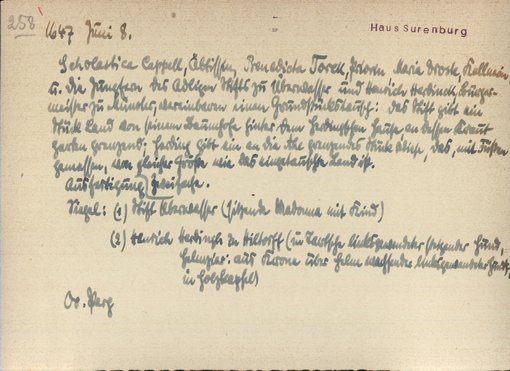 258
1647 Juni 8.
Haus Surenburg
Scholastica Cappell, Äbtissin, Benedicta Torck, Priorin, Maria Droste, Kellnerin
u. die Jungfern des Adligen Stifts zu Überwasser und Henrich Herdinck, Bürger-
meister zu Münster, vereinbaren einen Grundstückstausch: das Stift gibt ein
Stück Land von seinem Baumhofe hinter dem Herdingschen Hause, an dessen Kraut
garten grenzend; Herding gibt ein an die grenzendes Stück Wiese, das, mit Füßen
gemessen, von gleicher Größe wie das eingetauschte Land ist.
Ausfertigung zweifache.
Siegel: (1) Stift Überwasser (sitzende Madonna mit Kind)
(2) Henrich Herdingh zu Hiltorff (in Tartsche linksgewendeter sitzender Hund,
Helmzier: aus Krone über Helm wachsender linksgewendeter Hund,
in Holzkapsel)
Or. Perg